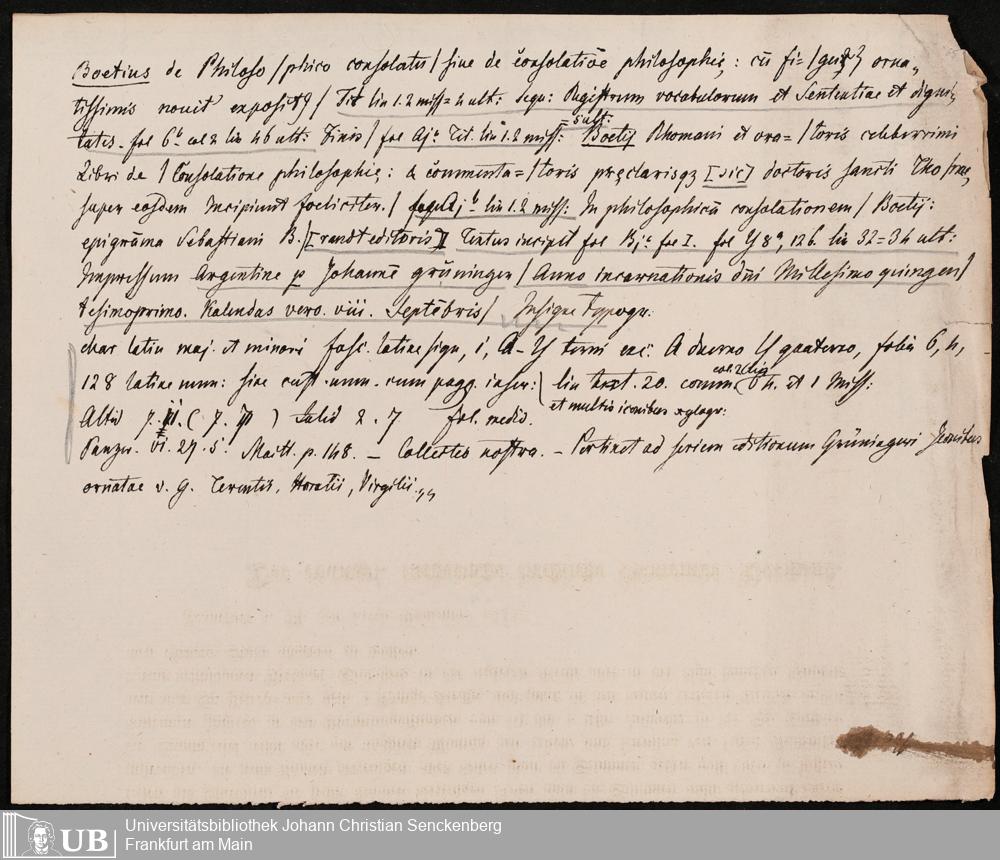 Boetius de Philoso / phico consolatu / siue de cōsolatiōe philosophię : cū fi= / orna„
tissimis nouit' exposit9 / Tit lin 1.2 miss = 4 ult: sequ: Registrum vocabulorum et Sententiae et digni„
tatis. fol 6b col 2 lin 46 ult: Finis / fol Aja Tit. lin 1.2 miss: = 5 ult: Boetij Rhomani et ora= / toris celiberrimi
Libri de / Consolatione philosophię : & cōmmenta= / toris pręclarisqz [sic] doctoris sancti Tho / me„
super eosdem Incipiunt foeliciter. / sequ Ajb lin 1.2 miss: In philosophicā consolationem / Boetij:
epigrāma Sebastiani B. / [randt editoris] Textus incipit fol Bja fol I. fol Y 8a, 126. lin 32 = 34 ult:
Impressum Argentine p Johannē grüninger / Anno incarnationis dñi Millesimo quingen /
tesimoprimo. Kalendas vero. viii. Septēbris / Insigne typogr:
char latin maj. et minori fasc. latine sign, i, A-Y terni exc: A duerno Y quaterno, folia 6, 4,
128 latine num: sine cust. num. cum pagg. inscr: / lin text. 20. comm. col. 2 lin 64. et 1 Miss:
et multis iconibus xylogr:
Altit 7. ( 7. ) Latid 2. 7 fol. medio.
Panzer. VI. 27. 5. Maitt. p. 148. – Collectes nostra. – Pertinet ad seriem editionum Grüningeri Iconibus
ornatae v. g. Terentii, Horatii, Virgilii.,,
Universitätsbibliothek Johann Christian Senckenberg
Frankfurt am Main
UB